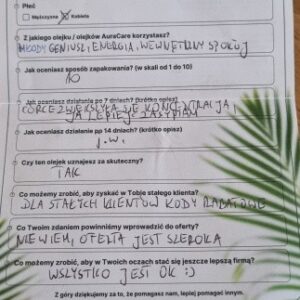 Płeć
Mężczyzna Kobieta
Z jakiego olejku / olejków AuraCare korzystasz?
MŁODY GENIUSZ, ENERGIA, WEWNĘTRZNY SPOKÓJ
Jak oceniasz sposób zapakowania? (w skali od 1 do 10)
10
Jak oceniasz działanie po 7 dniach? (krótko opisz)
CÓRCE ZWIĘKSZYŁA SIĘ KONCENTRACJA,
JA LEPIEJ ZASYPIAM
Jak oceniasz działanie pp 14 dniach? (krótko opisz)
J.W.
Czy ten olejek uznajesz za skuteczny?
TAK
Co możemy zrobić, aby zyskać w Tobie stałego klienta?
DLA STAŁYCH KLIENTÓW KODY RABATOWE
Co Twoim zdaniem powinniśmy wprowadzić do oferty?
NIE WIEM, OFERTA JEST SZEROKA
Co możemy zrobić, aby w Twoich oczach stać się jeszcze lepszą firmą?
WSZYSTKO JEST OK :)
Z góry dziękujemy za to, że pomagasz nam, lepiej pomagać innym.